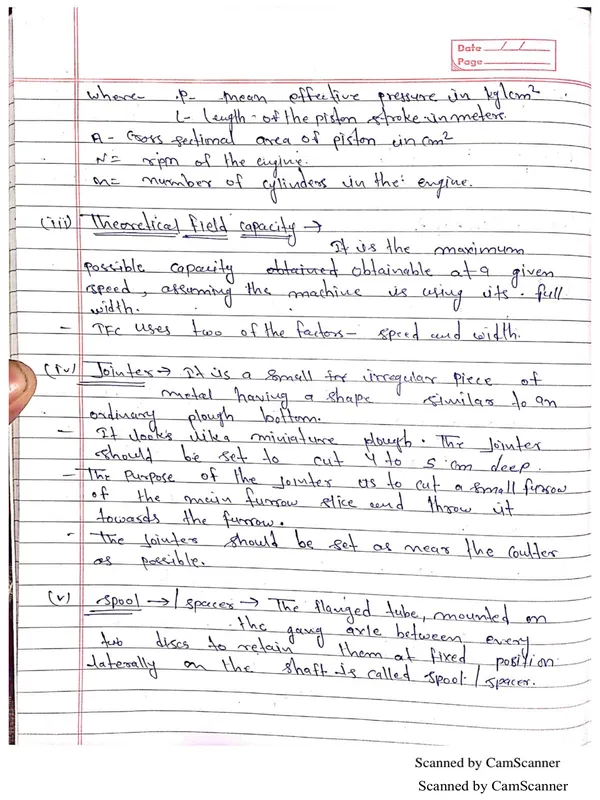 Date / /
Page
where- P- mean effective pressure in kg/cm2
L- length of the piston stroke in meters.
A- Cross sectional area of piston in cm2
N= rpm of the engine.
n= number of cylinders in the engine.
(iii) Theoretical field capacity →
It is the maximum
possible capacity obtained obtainable at a given
speed, assuming the machine is using its full
width.
- TFC uses two of the factors- speed and width.
(iv) Jointer → It is a small irregular piece of
metal having a shape similar to an
ordinary plough bottom.
- It looks like miniature plough. The Jointer
should be set to cut 4 to 5 cm deep.
- The Purpose of the Jointer is to cut a small furrow
of the main furrow slice and throw it
towards the furrow.
- The Jointer should be set as near the coulter
as possible.
(v) spool → / spacer → The flanged tube, mounted on
the gang axle between every
two discs to retain them at fixed position
laterally on the shaft is called spool / spacer.
Scanned by CamScanner
Scanned by CamScanner